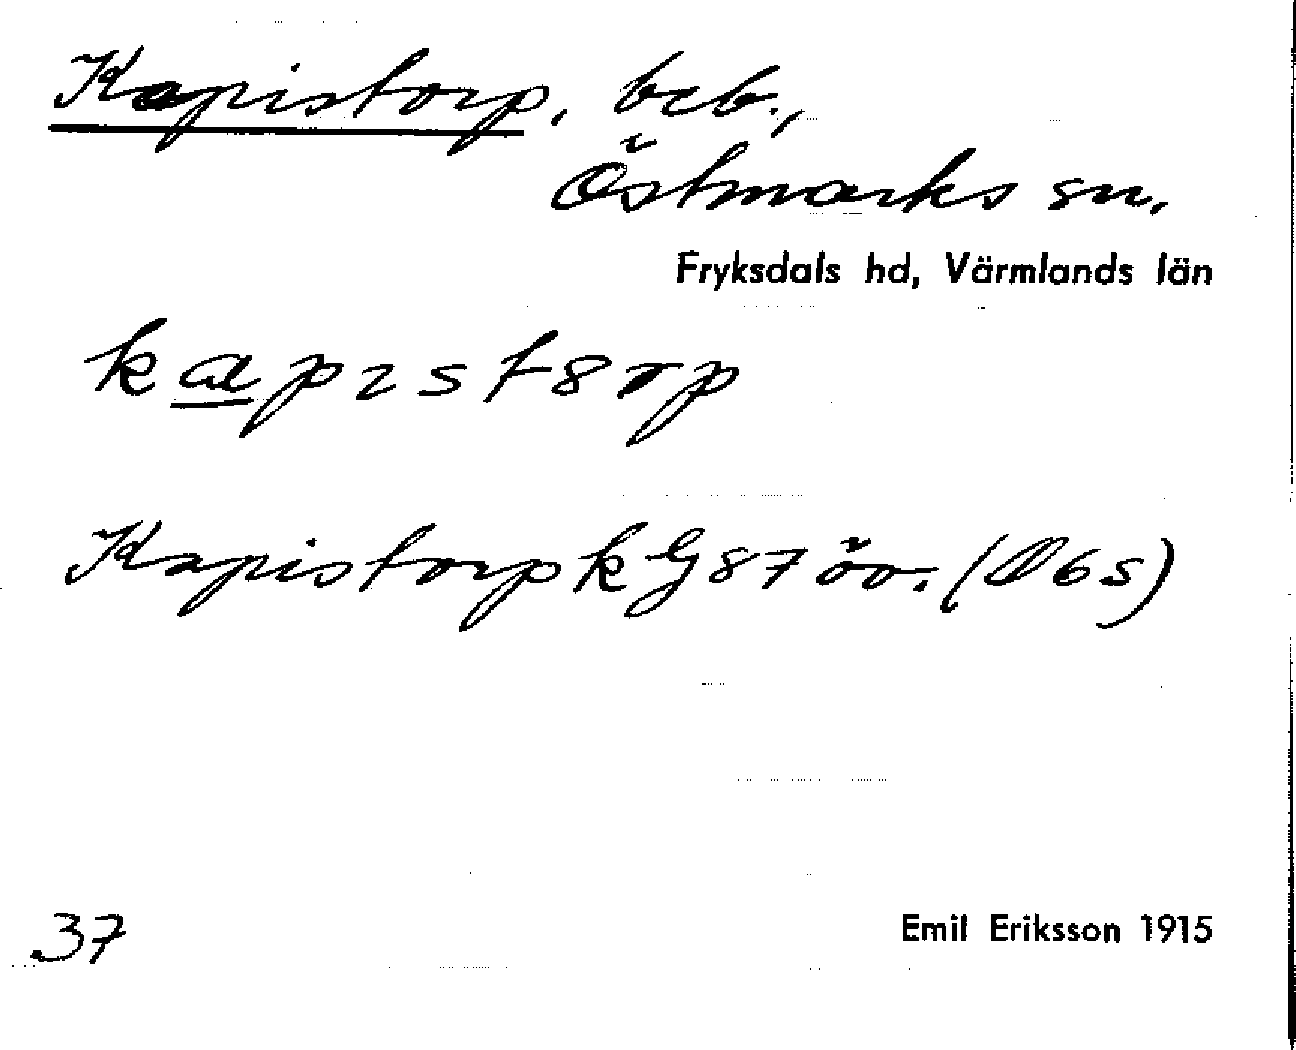 Kapistorp, beb.,
Östmarks sn.
Fryksdals hd, Värmlands län
Kapistorp k G 87 öv. (
37
Emil Eriksson 1915